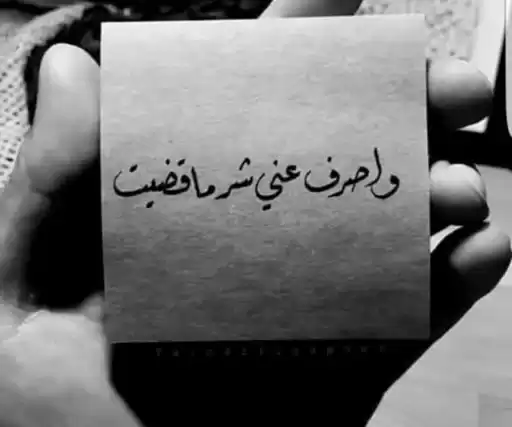 واصرف عني شر ما قضيت